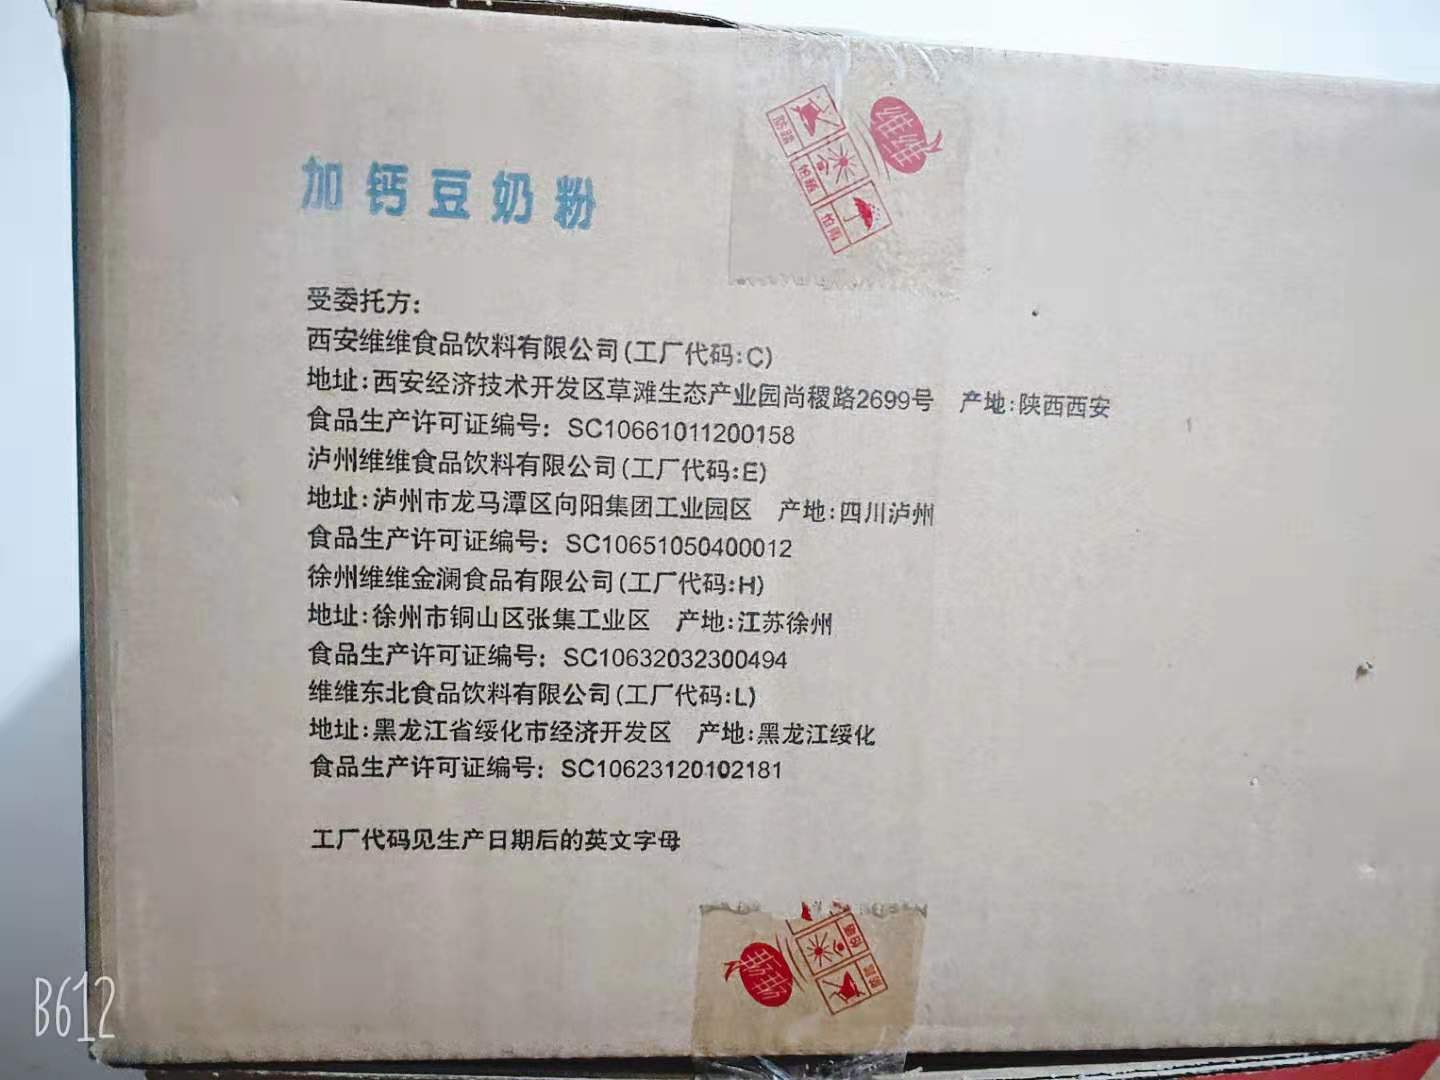 加钙豆奶粉
维维
防踏
怕晒
怕雨
受委托方:
西安维维食品饮料有限公司(工厂代码:C)
地址:西安经济技术开发区草滩生态产业园尚稷路2699号 产地:陕西西安
食品生产许可证编号: SC10661011200158
泸州维维食品饮料有限公司(工厂代码:E)
地址:泸州市龙马潭区向阳集团工业园区 产地:四川泸州
食品生产许可证编号: SC10651050400012
徐州维维金澜食品有限公司(工厂代码:H)
地址:徐州市铜山区张集工业区 产地:江苏徐州
食品生产许可证编号: SC10632032300494
维维东北食品饮料有限公司(工厂代码:L)
地址:黑龙江省绥化市经济开发区 产地:黑龙江绥化
食品生产许可证编号: SC10623120102181
工厂代码见生产日期后的英文字母
维维
怕晒
防踏
B612